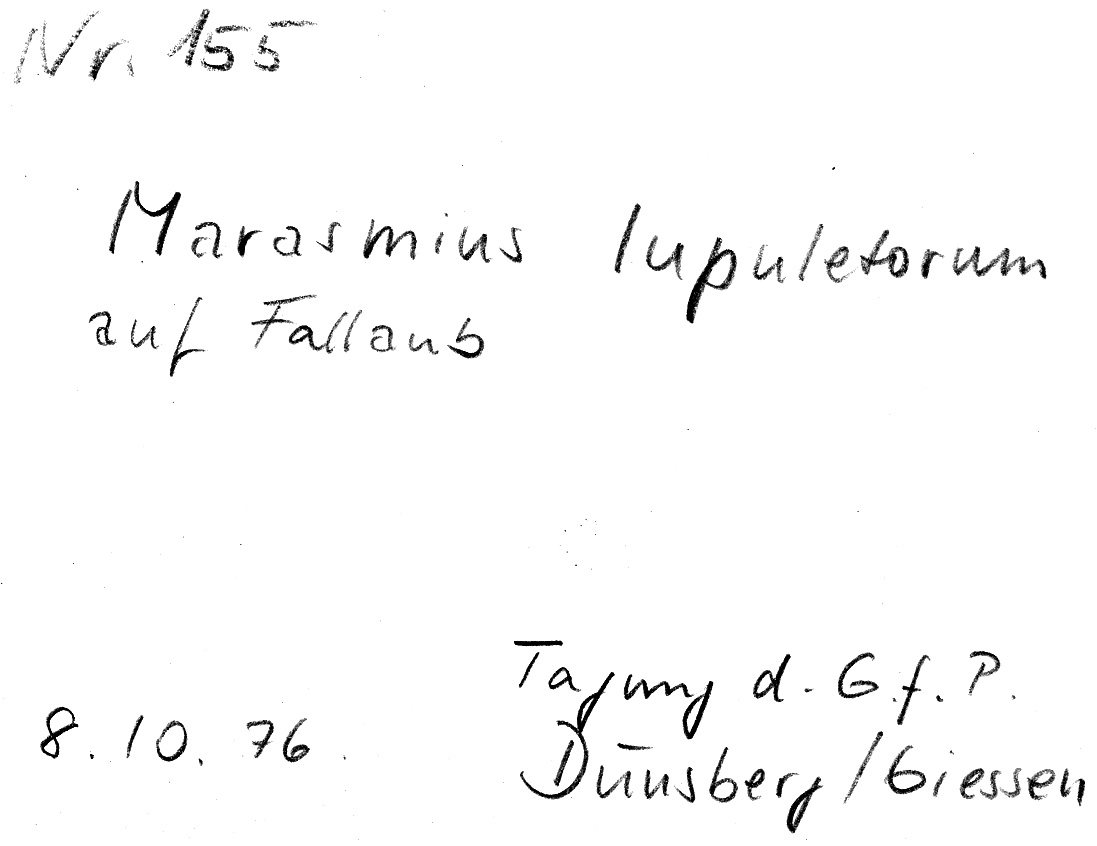 Nr. 155
Marasmius lupuletorum
auf Fallaub
Tagung d. G.f.P.
8.10.76
Dünsberg/Giessen